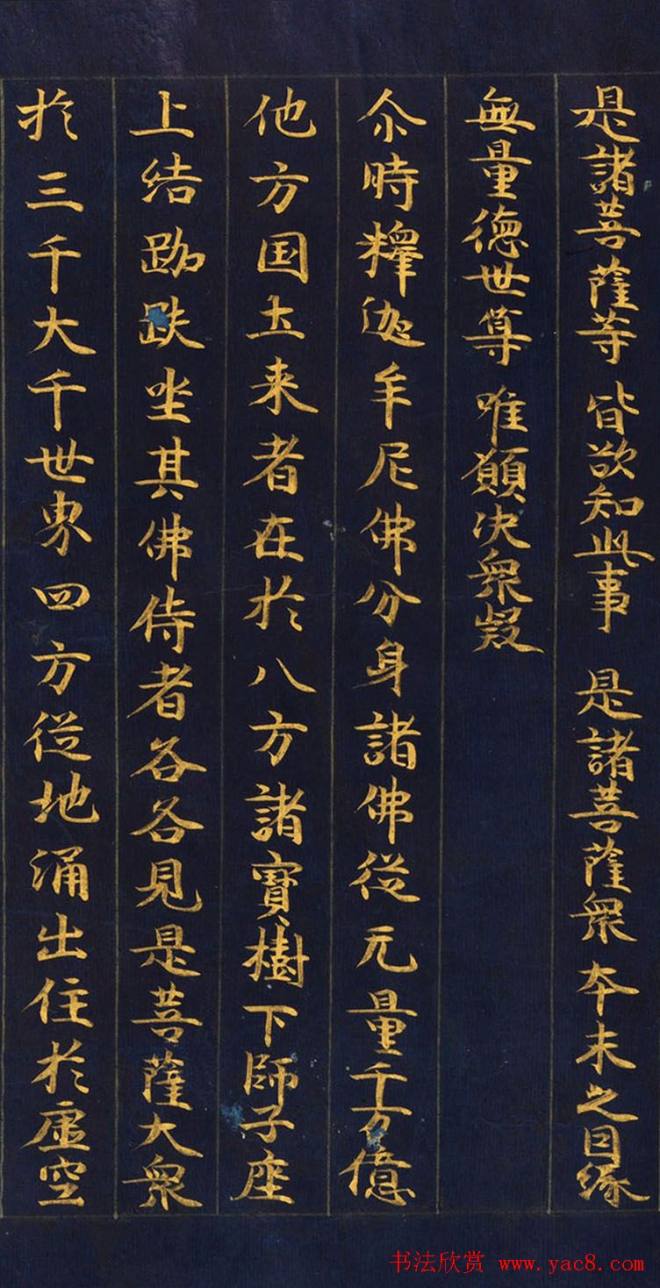 是諸菩薩等 皆欲知此事 是諸菩薩衆 本末之因縁
無量徳世尊 唯願决衆疑
尒時釋迦牟尼佛分身諸佛從元量千万億
他方国土来者在於八方諸寳樹下師子座
上結跏趺坐其佛侍者各各見是菩薩大衆
於三千大千世界四方從地涌出住於虛空
书法欣赏 www.yac8.com